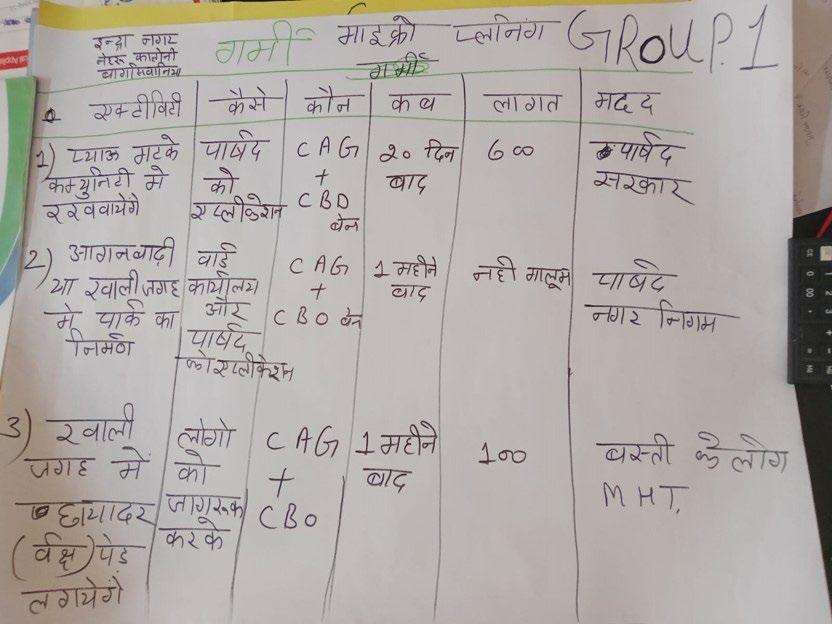 इन्द्रा नगर
नेहरू कालोनी
बागमिवानिया
गर्मी माईक्रो प्लनिंग GROUP.1
गर्मी
एक्टीविटी कैसे कौन कब लागत मदद
1) प्याऊ मटके पार्षद CAG 20 दिन 600 पार्षद
कम्युनिटी मे को + बाद सरकार
रखवायेंगे एप्लीकेशन CBO
बेन
2) आगनवाढ़ी वार्ड CAG 1 महीने नही मालूम पार्षद
या खाली जगह कार्यालय + बाद नगर निगम
मे पार्क का और CBO बेन
निर्माण पार्षद
को एप्लीकेशन
3) खाली लोगो CAG 1 महीने 100 बस्ती के लोग
जगह में को + बाद MHT.
छायादर जागरूक CBO
(र्वक्ष) पेड़ करके
लगयेगे